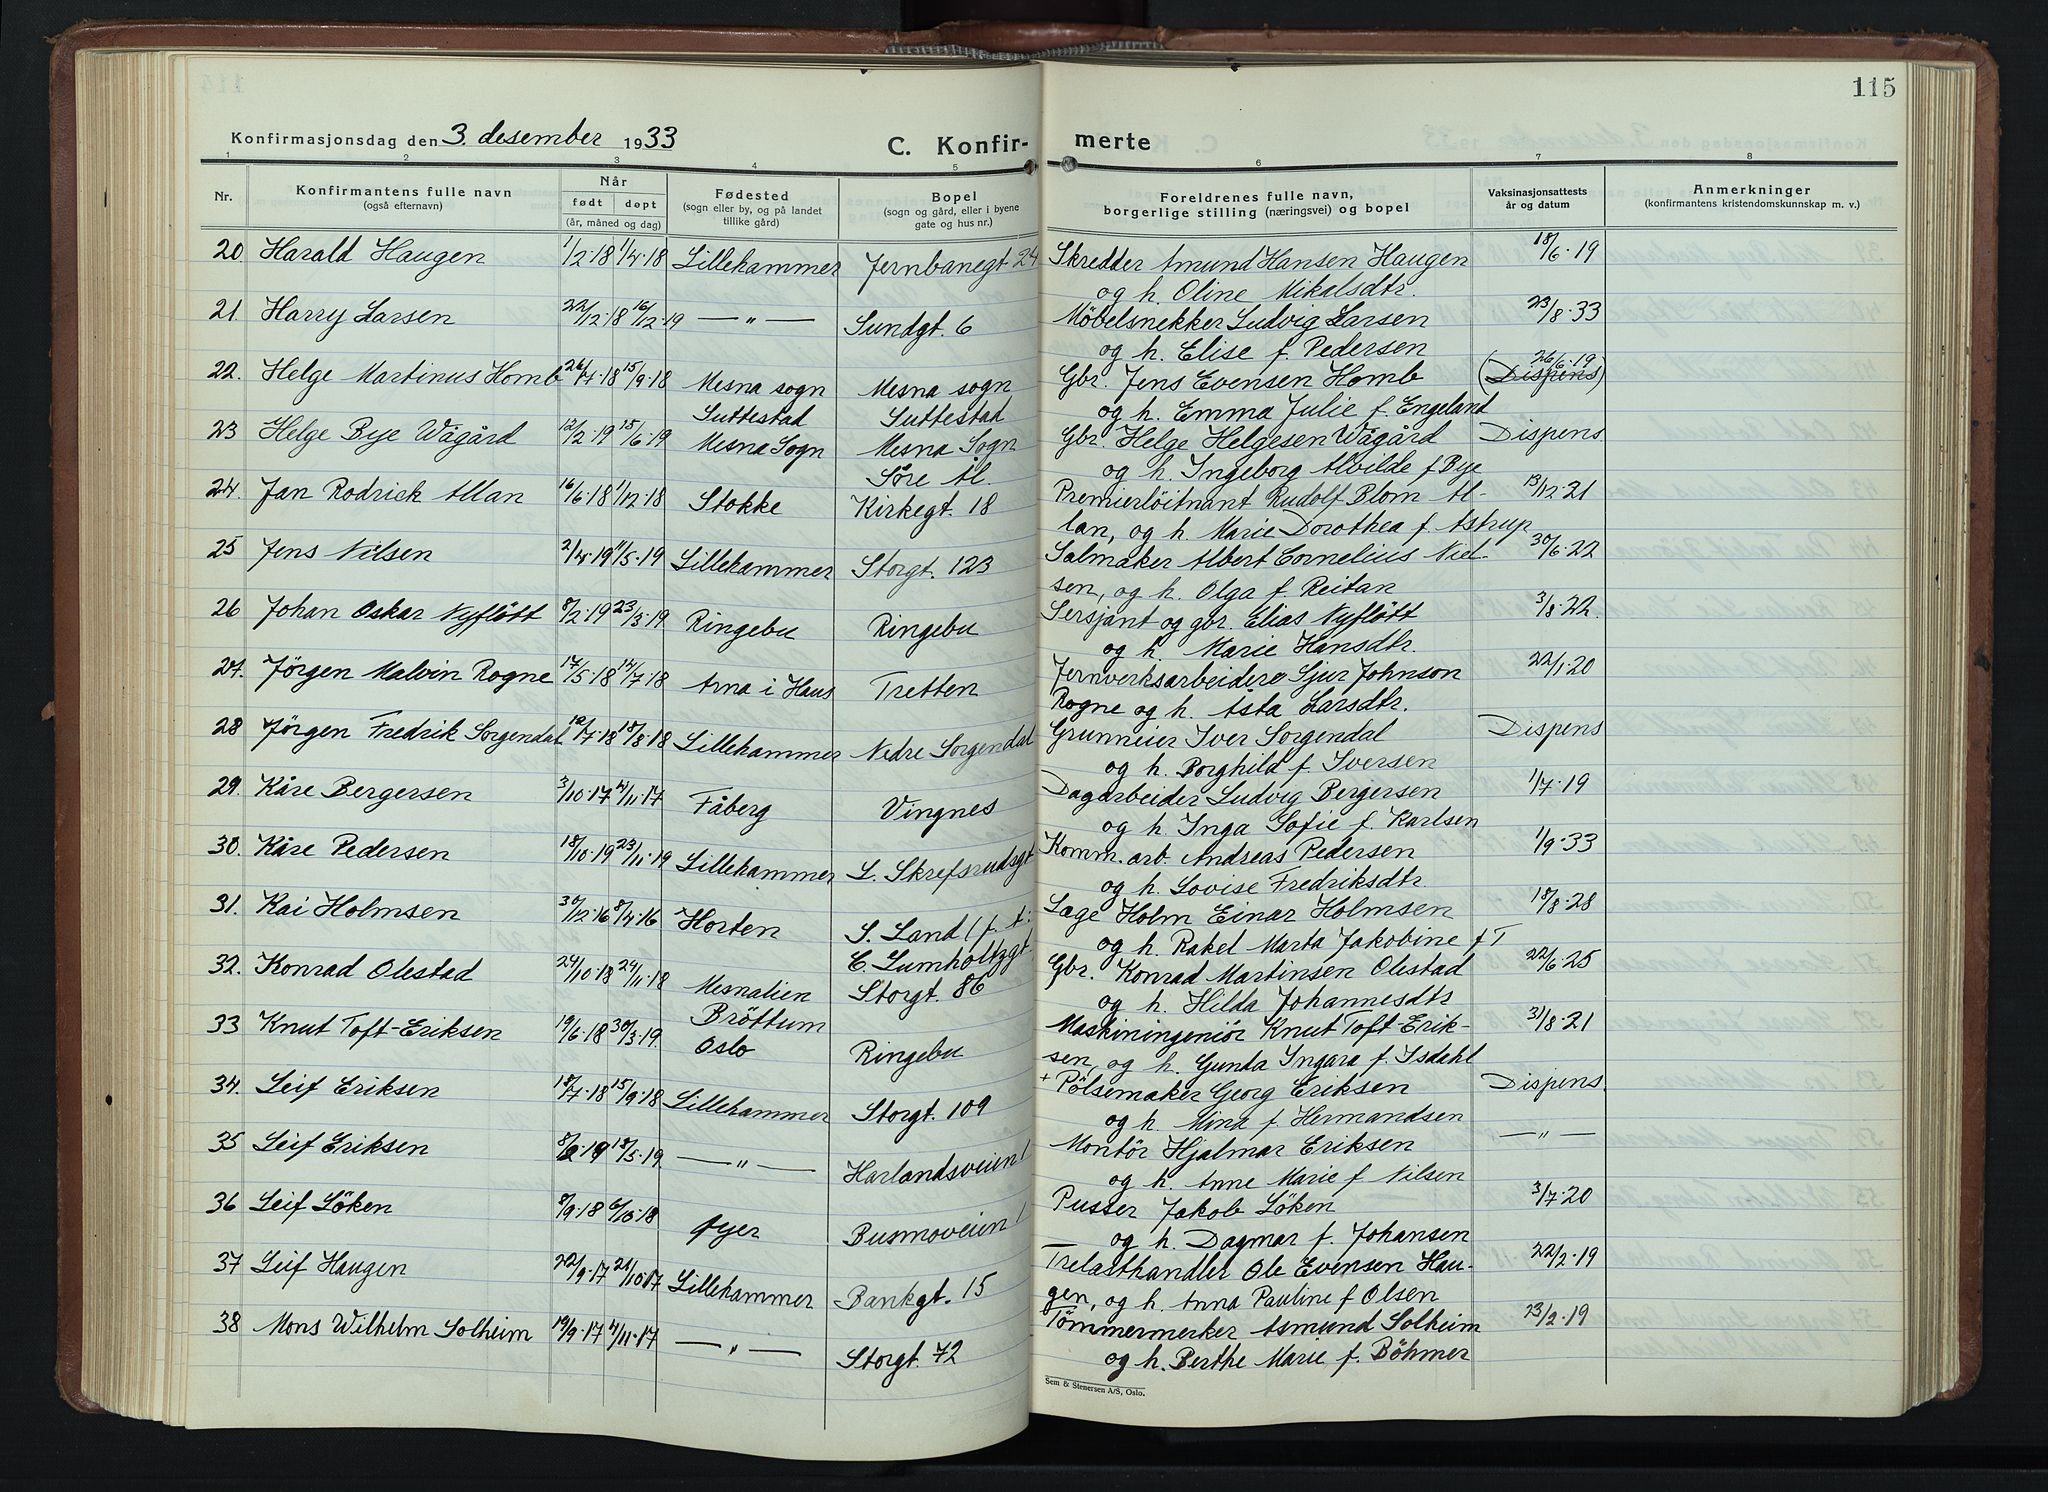 115
Konfirmasjonsdag den 3. desember 1933
C. Konfir- merte
1 2 3 4 5 6 7 8
Nr.
Konfirmantens fulle navn
(også efternavn)
Når
født døpt
(år, måned og dag)
Fødested
(sogn eller by, og på landet
tillike gård)
Bopel
(sogn og gård, eller i byene
gate og hus nr.)
Foreldrenes fulle navn,
borgerlige stilling (næringsvei) og bopel
Vaksinasjonsattests
år og datum
Anmerkninger
(konfirmantens kristendomskunnskap m. v.)
20 Harald Haugen 1/2·18 1/4·18 Lillehammer Jernbanegt 24 Skredder Amund Hansen Haugen 18/6·19
og h. Oline Mikalsdtr.
21. Harry Larsen 22/12·18 16/12·19 — „ — Sundgt. 6 Möbelsnekker Ludvig Larsen 23/8·33
og h. Elise f. Pedersen
22. Helge Martinus Homb 26/4·18 15/9·18 Mesna sogn Mesna sogn Gbr. Jens Evensen Homb 26/6·19 (Dispens)
Suttestad Suttestad og h. Emma Julie f. Engeland
23 Helge Bye Wågård 12/2·19 15/6·19 Mesna Sogn Mesna Sogn Gbr. Helge Helgesen Wågård Dispens
Söre Ål. og h. Ingeborg Alvilde f Bye
24. Jan Rodrick Allan 16/6·18 1/12·18 Stokke Kirkegt. 18 Premierlöitnant Rudolf Blom Al- 13/12·21
lan, og h. Marie Dorothea f. Astrup
25 Jens Nilsen 2/4·19 11/5·19 Lillehammer Storgt. 123 Salmaker Albert Cornelius Niel- 30/6·22
sen, og h. Olga f. Reitan
26 Johan Oskar Nyflött 8/2·19 23/3·19 Ringebu Ringebu Sersjant og gbr. Elias Nyflött 3/8·22.
og h. Marie Hansdtr.
27. Jörgen Malvin Rogne 17/5·18 14/7·18 Arna i Haus Tretten Jernverksarbeider Sjur Johnson 22/1·20
Rogne og h. Asta Larsdtr.
28 Jörgen Fredrik Sorgendal 12/7·18 18/8·18 Lillehammer Nedre Sorgendal Grunneier Iver Sorgendal Dispens
og h. Borghild f. Iversen
29. Kåre Bergersen 3/10·17 4/11·17 Fåberg Vingnes Dagarbeider Ludvig Bergersen 1/7·19
og h. Inga Sofie f. Karlsen
30. Kåre Pedersen 18/10·19 23/11·19 Lillehammer L. Skrefsrudsgt Komm. arb. Andreas Pedersen 1/9·33
og h. Lovise Fredriksdtr.
31. Kai Holmsen 30/12·16 8/4·16 Horten S. Land (f. t: Læge Holm Einar Holmsen 18/8·28
C. Lumholtzgt. og h. Rakel Marta Jakobine f T
32. Konrad Olestad 24/10·18 24/11·18 Mesnalien Storgt. 86 Gbr. Konrad Martinsen Olestad 22/6·25
Bröttum og h. Hilda Johannesdtr
33 Knut Toft-Eriksen 19/6·18 30/3·19. Oslo Ringebu Maskiningeniör Knut Toft-Erik- 31/8·21
sen, og h. Gunda Ingara f. Isdahl
34. Leif Eriksen 18/7·18 15/9·18 Lillehammer Storgt. 109 + Pölsemaker Georg Eriksen Dispens
og h. Mina f Hermandsen
35 Leif Eriksen 8/2·19 18/5·19 — „ — Harlandsveien 1 Montör Hjalmar Eriksen — „ —
og h. Anne Marie f Nilsen
36 Leif Löken 8/9·18 6/10·18 Öyer Busmoveien 1 Pusser Jakob Löken 3/7·20
og h. Dagmar f. Johansen
37 Leif Haugen 22/9·17 21/10·17 Lillehammer Bankgt. 15 Trelasthandler Ole Evensen Hau- 22/2·19
gen, og h. Anna Pauline f Olsen
38 Mons Wilhelm Solheim 19/9·17 4/11·17 — „ — Storgt. 72 Tömmermerker Asmund Solheim 23/2·19
og h. Berthe Marie f. Böhmer
Sem & Stenersen A/S, Oslo.